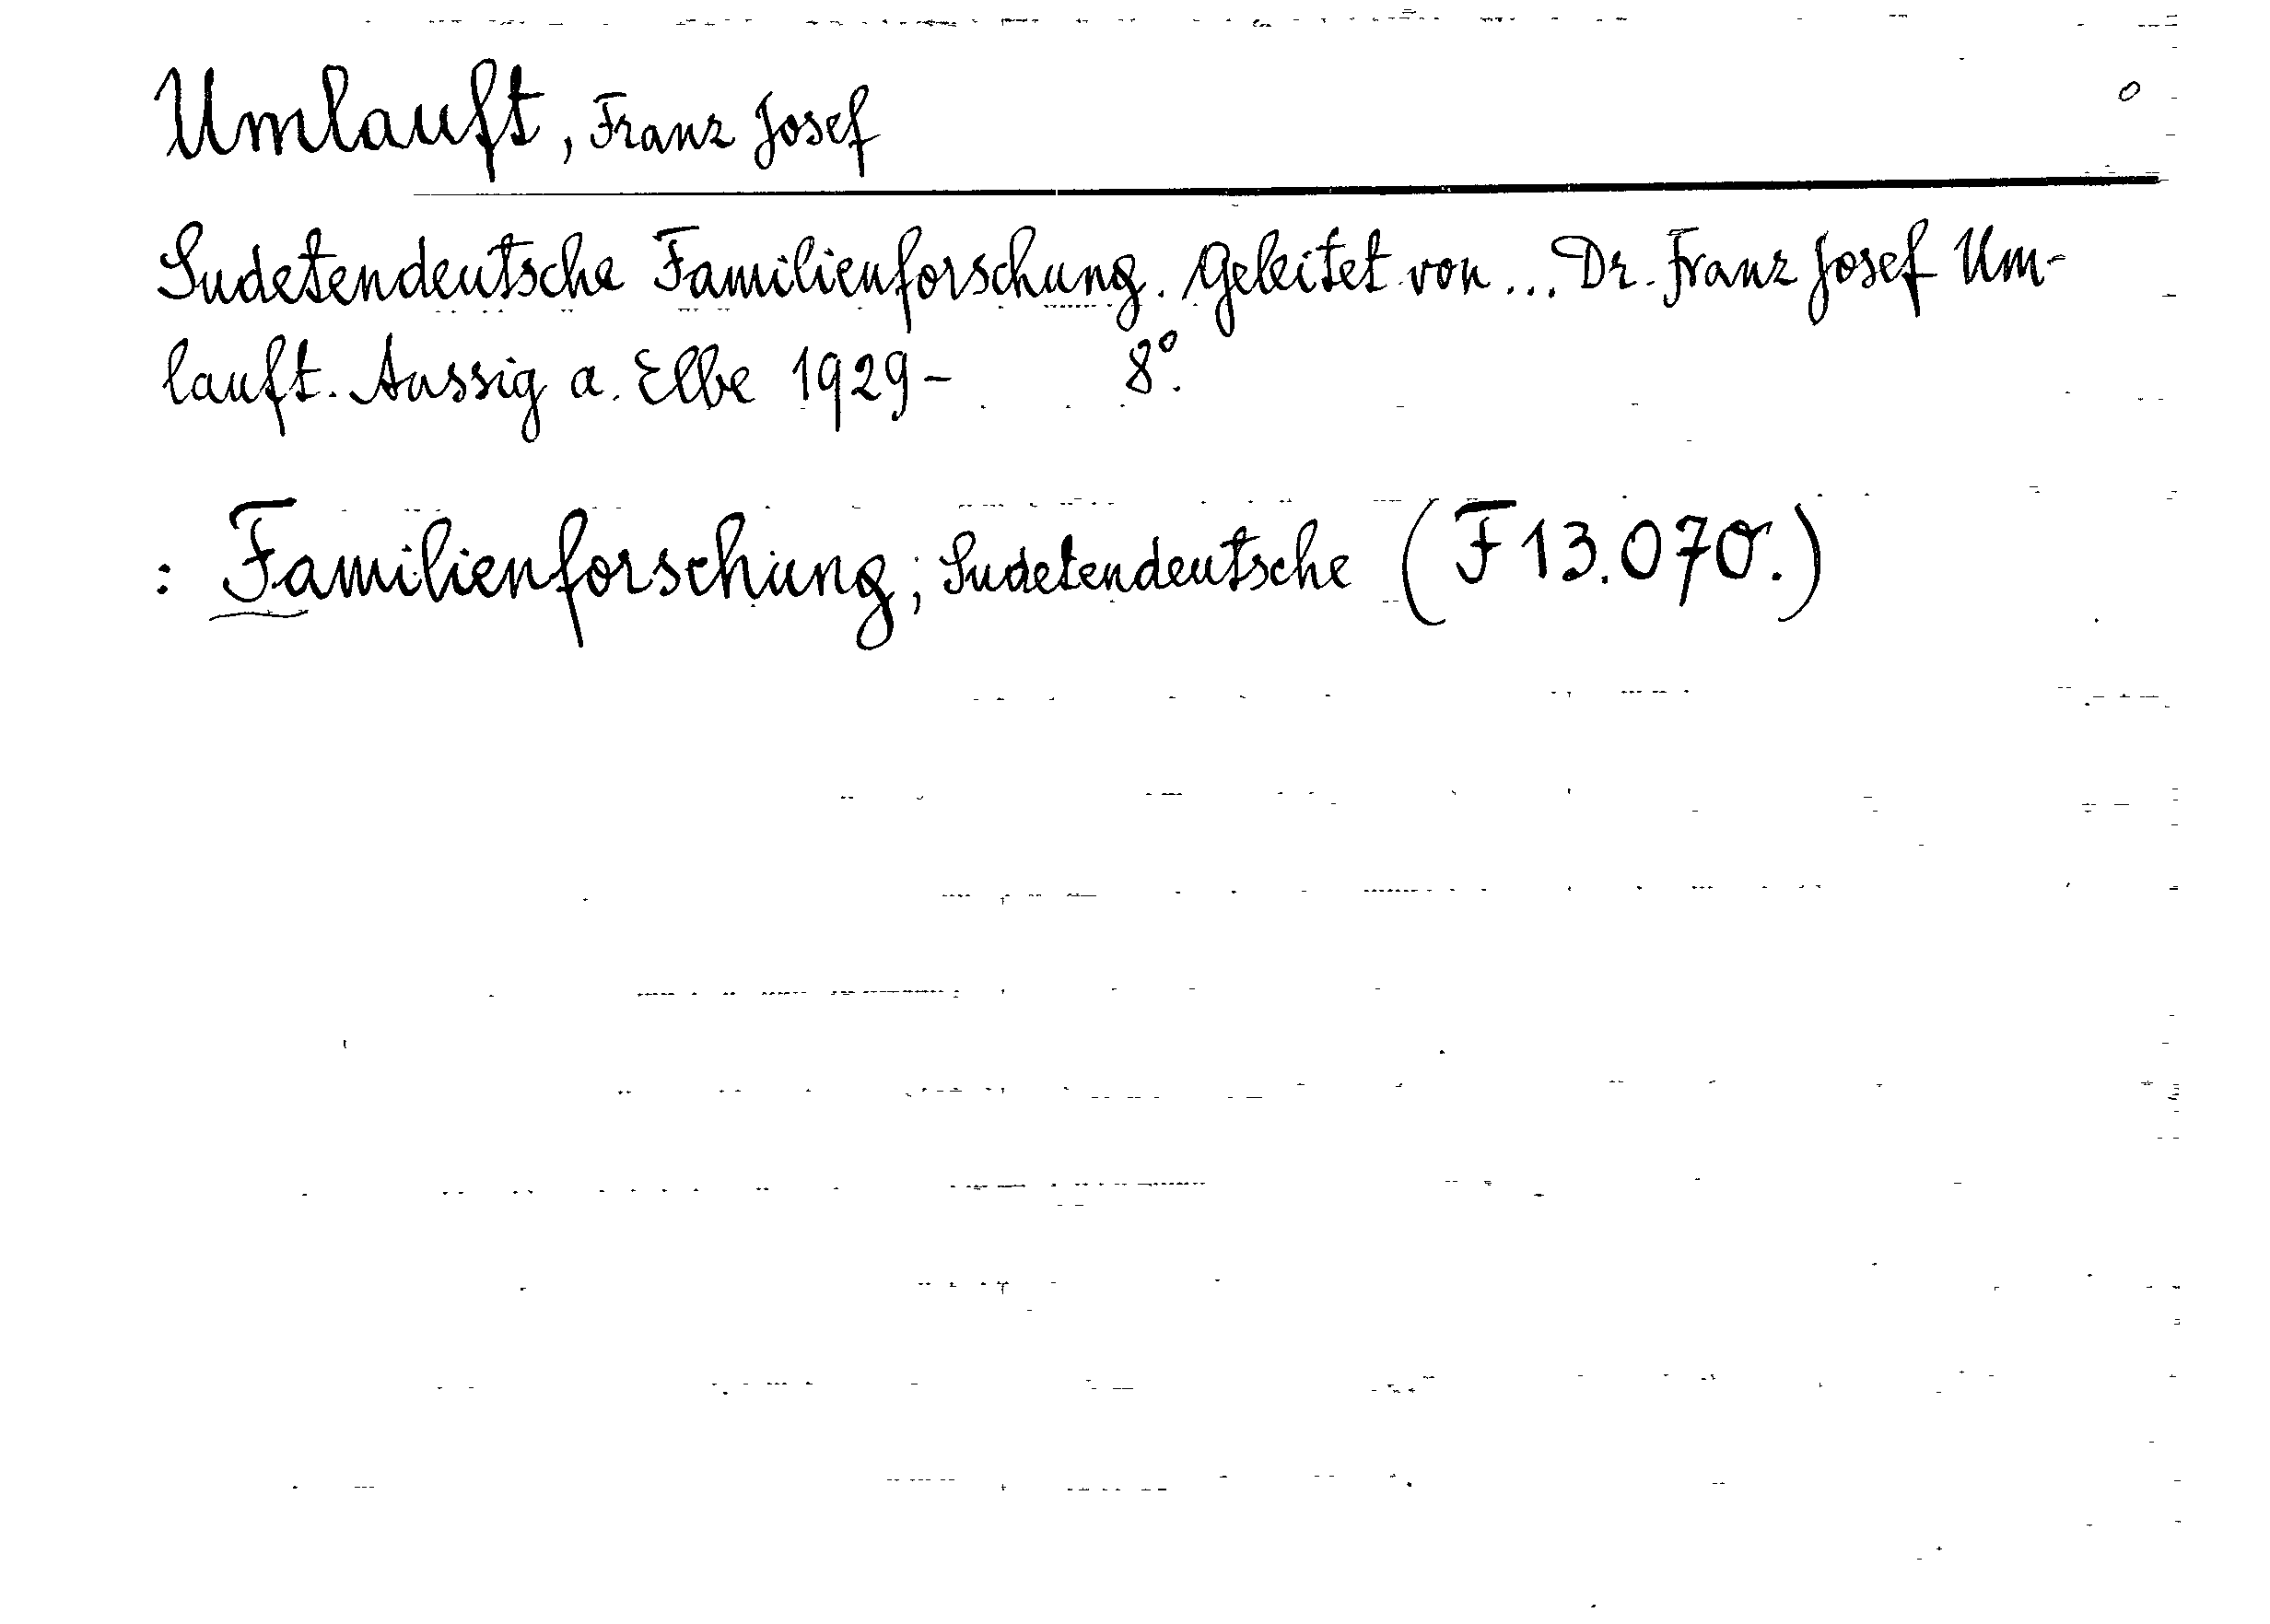 Umlauft, Franz Josef o
Sudetendeutsche Familienforschung. Geleitet von ... Dr. Franz Josef Um-
lauft. Aussig a. Elbe 1929- 8°.
: Familienforschung; Sudetendeutsche (F 13.070.)